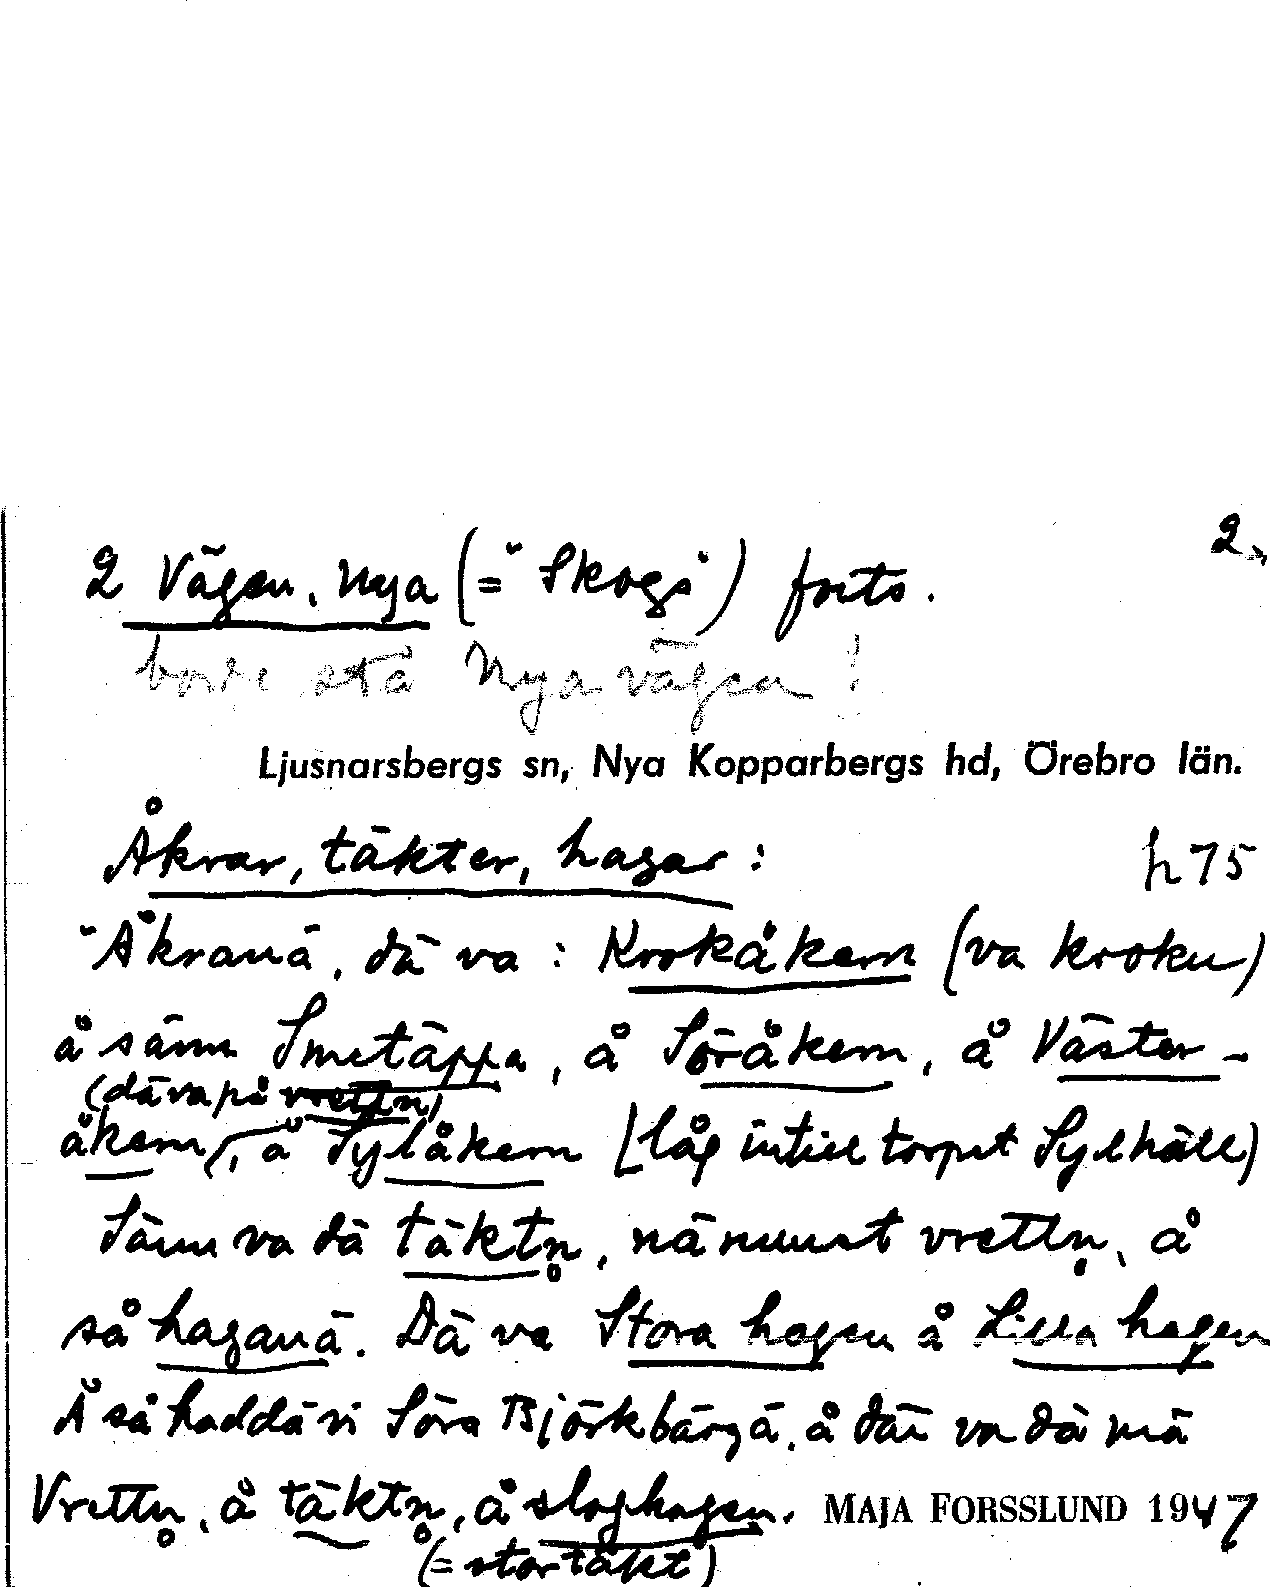 2.
2 Vägen, Nya (= "Skogs") forts.
borde stå Nya vägen!
Ljusnarsbergs sn, Nya Kopparbergs hd, Örebro län.
Åkrar, täkter, hagar: h 75
"Åkranä, dä va: Krokåkern (va kroku)
å sänn Smetäppa, å Söråkern, å Väster-
(dä va på vrettn)
åkern, å Sylåkern (låg intill torpet Sylhäll)
Sänn va dä täktn, nämmast vrettn, å
så haganä. Dä va Stora hagen å Lilla hagen
Å så haddä vi Söra Björkbärgä, å där va dä mä
Vrettn, å täktn, å sloghagen. MAJA FORSSLUND 1947
(= stortäkt)